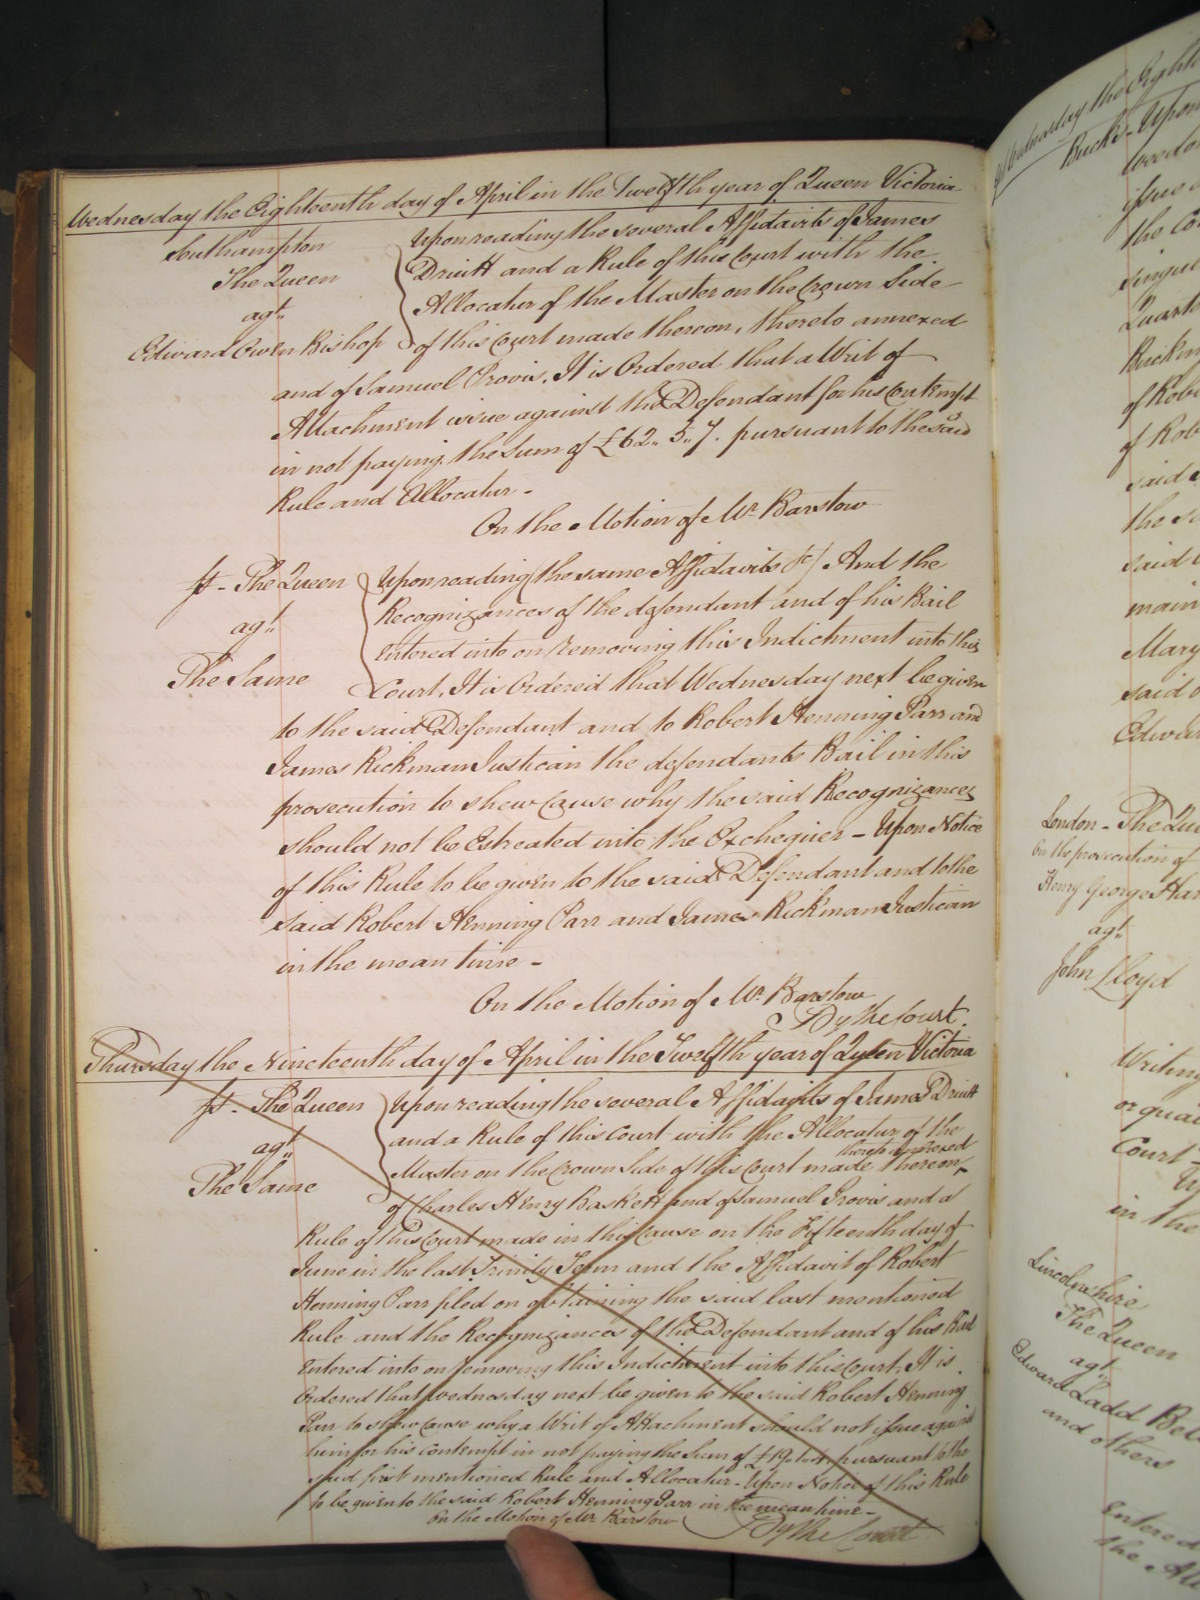 Wednesday the Eighteenth day of April in the Twelfth year of Queen Victoria
Southampton
The Queen
agt.
Edward Owen Bishop
Upon reading the several Affidavits of James
Druitt and a Rule of this Court with the
Allocatur of the Master on the Crown Side
of this Court made thereon, thereto annexed
and of Samuel Provis. It is Ordered that a Writ of
Attachment issue against the Defendant for his Contempt
in not paying the Sum of £62.. 5.. 7. pursuant to the said
Rule and Allocatur -
On the Motion of Mr. Barstow
The Queen
agt.
The Same
Upon reading (the same Affidavits &c) And the
Recognizances of the defendant and of his Bail
entered into on removing this Indictment into this
Court. It is Ordered that Wednesday next be given
to the said Defendant and to Robert Henning Parr and
James Rickman Justican the defendants Bail in this
prosecution to shew Cause why the said Recognizances
should not be Estreated into the Exchequer - Upon Notice
of this Rule to be given to the said Defendant and to the
said Robert Henning Parr and James Rickman Justican
in the mean time -
On the Motion of Mr. Barstow
By the Court.
Thursday the Nineteenth day of April in the Twelfth year of Queen Victoria
The Queen
agt.
The Same
Upon reading the several Affidavits of James Druitt
and a Rule of this Court with the Allocatur of the
Master on the Crown Side of this Court made thereon
thereto annexed
of Charles Henry Baskett and of Samuel Provis and a
Rule of this Court made in this Cause on the Fifteenth day of
June in the last Trinity Term and the Affidavit of Robert
Henning Parr filed on obtaining the said last mentioned
Rule and the Recognizances of the Defendant and of his Bail
entered into on removing this Indictment into this Court. It is
Ordered that Wednesday next be given to the said Robert Henning
Parr to shew Cause why a Writ of Attachment should not issue against
him for his Contempt in not paying the Sum of pursuant to the
said first mentioned Rule and Allocatur - Upon Notice of this Rule
to be given to the said Robert Henning Parr in the mean time -
On the Motion of Mr. Barstow
By the Court
Wednesday the Eighte
Bucks - Upon
the Co
of Robe
of Rob
said
the
said
main
Mary
said
Edwar
London - The Que
On the prosecution of
Henry George Har
agt.
John Lloyd
Writing
or qua
Court
in the
Lincolnshire
The Queen
agt.
Edward Ladd Bet
and others
Entered
the